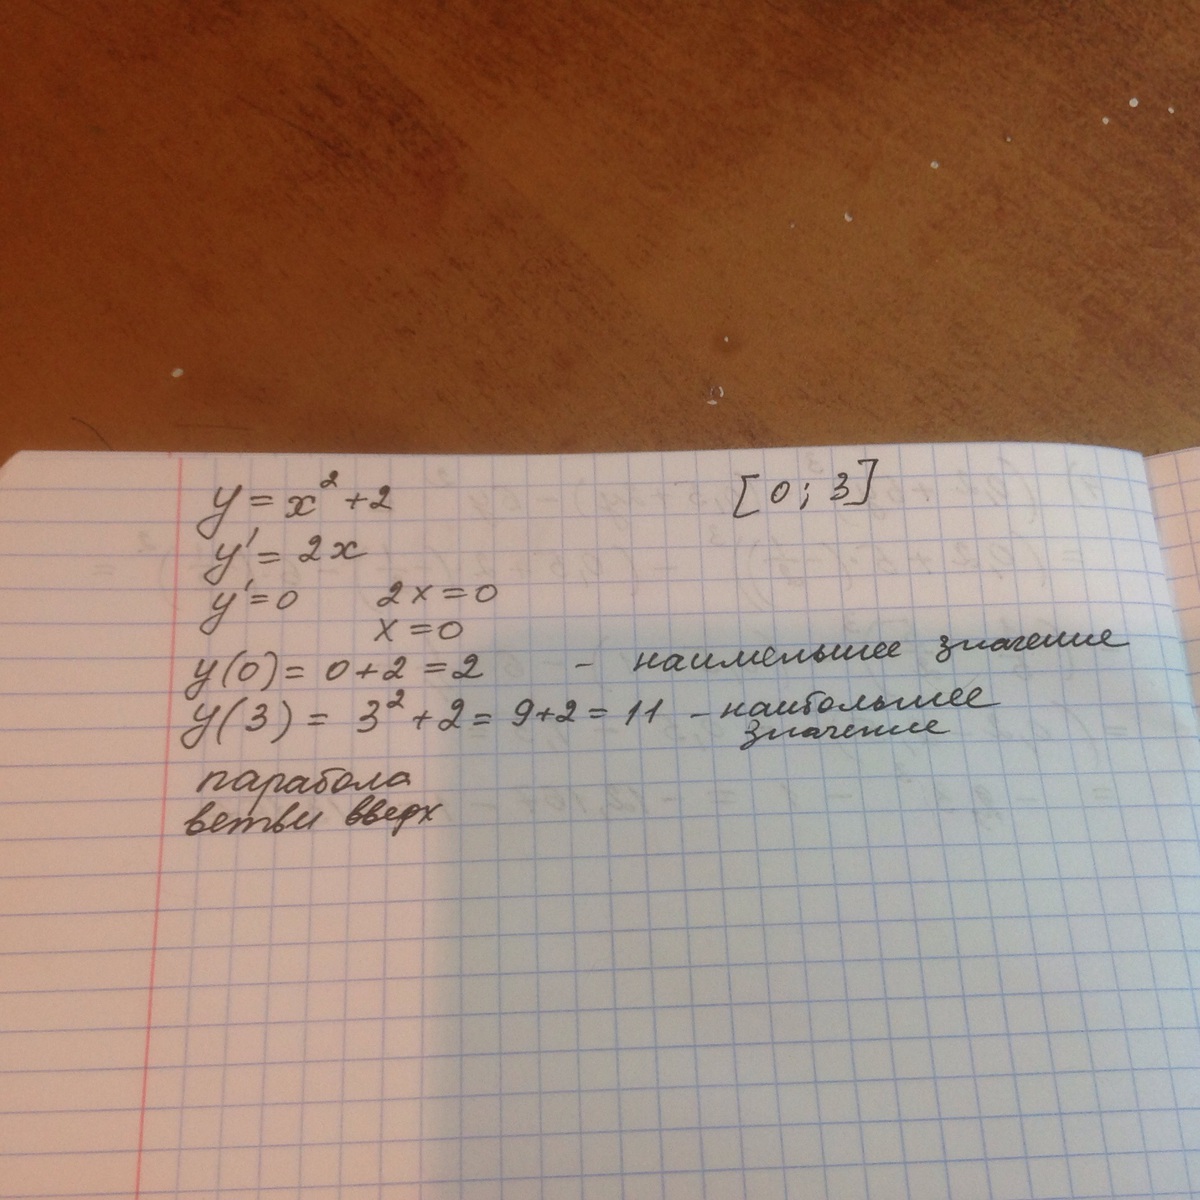 y = x² + 2 [0; 3]
y' = 2x
y' = 0 2x = 0
x = 0
y(0) = 0 + 2 = 2 - наименьшее значение
y(3) = 3² + 2 = 9 + 2 = 11 - наибольшее
значение
парабола
ветви вверх